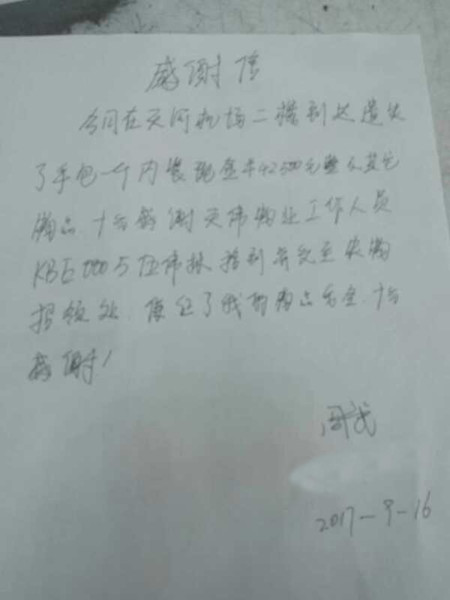 感谢信
今日在天河机场二楼到达遗失
了手包一个内装现金¥42500元整及其它
物品.十分感谢天伟物业工作人员
KBE0005 捡到并交至失物
招领处.保证了我的物品安全.十分
感谢!
周武
2017-9-16